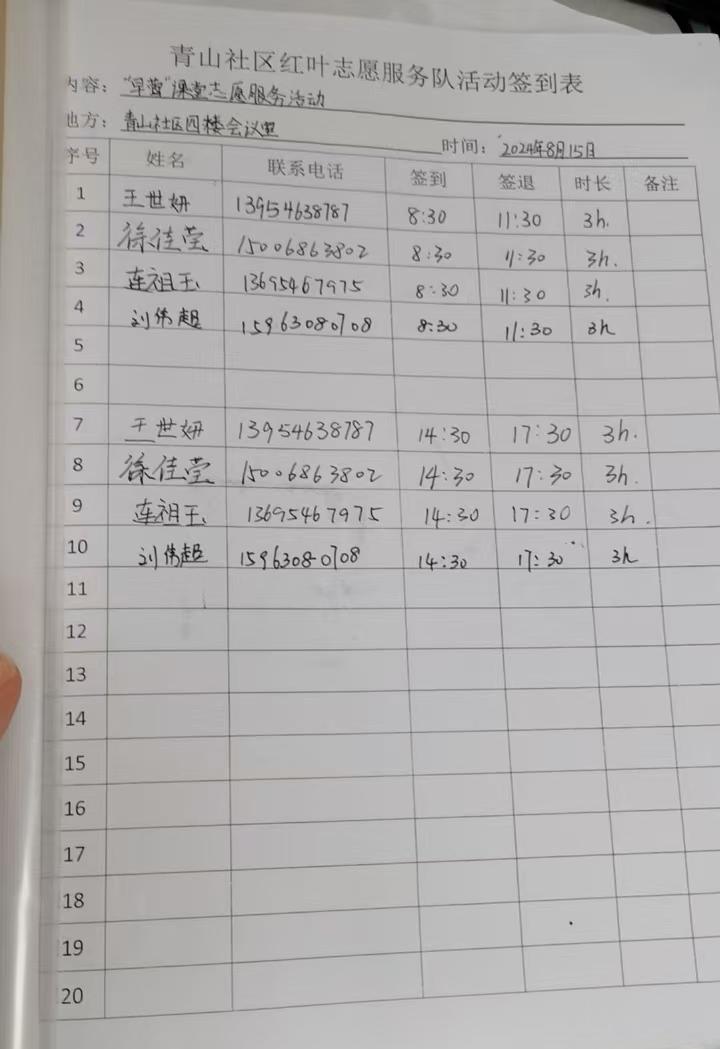 青山社区红叶志愿服务队活动签到表
内容：“早莺”课堂志愿服务活动
地方：青山社区四楼会议室
时间：2024年8月15日
序号 姓名 联系电话 签到 签退 时长 备注
1 王世妍 13954638787 8:30 11:30 3h.
2 徐佳莹 15006863802 8:30 11:30 3h.
3 连祖玉 13695467975 8:30 11:30 3h.
4 刘伟超 15963080708 8:30 11:30 3h
5
6
7 王世妍 13954638787 14:30 17:30 3h.
8 徐佳莹 15006863802 14:30 17:30 3h.
9 连祖玉 13695467975 14:30 17:30 3h.
10 刘伟超 15963080708 14:30 17:30 3h
11
12
13
14
15
16
17
18
19
20